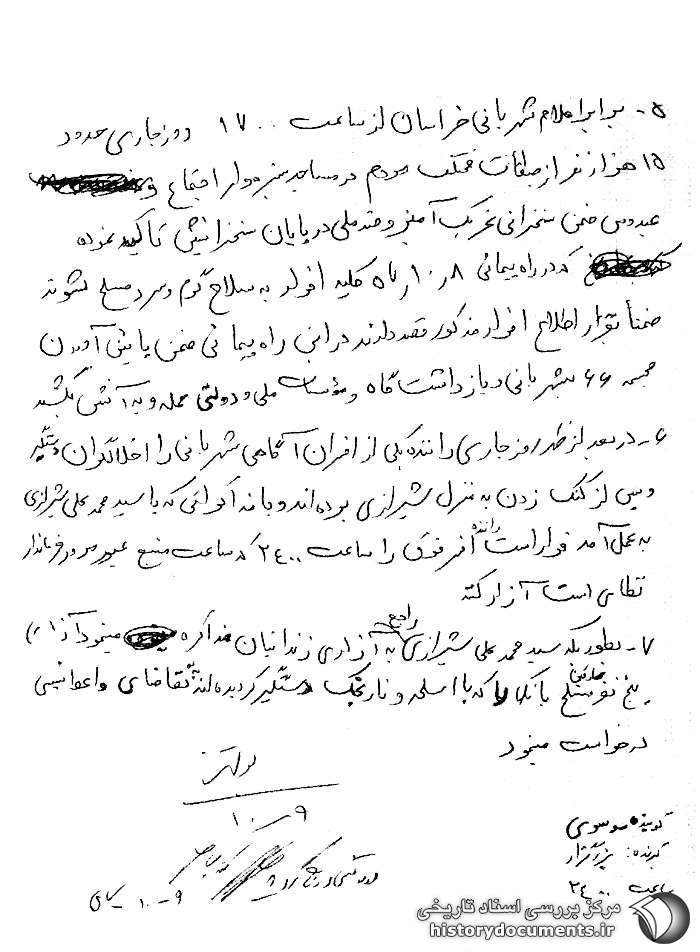 ۵- برابر اعلام شهربانی خراسان از ساعت ۱۷۰۰ روز جاری حدود
۱۵ هزار نفر از طبقات مختلف مردم در مساجد اجتماع و
ضمن سخنرانی تحریک آمیز و ضد ملی در پایان سخنرانیش تاکید نموده
که در راه پیمائی ۸ر۱۰ر۵ کلیه افراد به سلاح گرم و سرد مسلح شوند
ضمناً برابر اطلاع افراد مذکور قصد دارند در این راه پیمائی ضمن پایین آوردن
مجسمه ۶۶ شهربانی و بازداشتگاه و مؤسسات ملی و دولتی حمله و به آتش بکشند
۶- در بعد از ظهر روز جاری راننده یکی از افسران آگاهی شهربانی را اخلالگران دستگیر
و پس از کتک زدن به منزل شیرازی بوده‌اند و با مذاکراتی که با سید محمد علی شیرازی
به عمل آمد قرار است راننده افسر فوق را ساعت ۲۴۰۰ که ساعت منع عبور و مرور فرماندار
نظامی است آزاد کند
۷- بطوریکه سید محمد علی شیرازی راجع به آزادی زندانیان مذاکره مینمود آزادی
پنج نفر مسلح بانک را که با اسلحه و نارنجک دستگیر گردیده‌اند تقاضای
درخواست مینمود
۹ر۱۰
گوینده: موسوی
گیرنده:
ساعت ۲۴۰۰
۹-۱۰-
مرکز بررسی اسناد تاریخی
historydocuments.ir